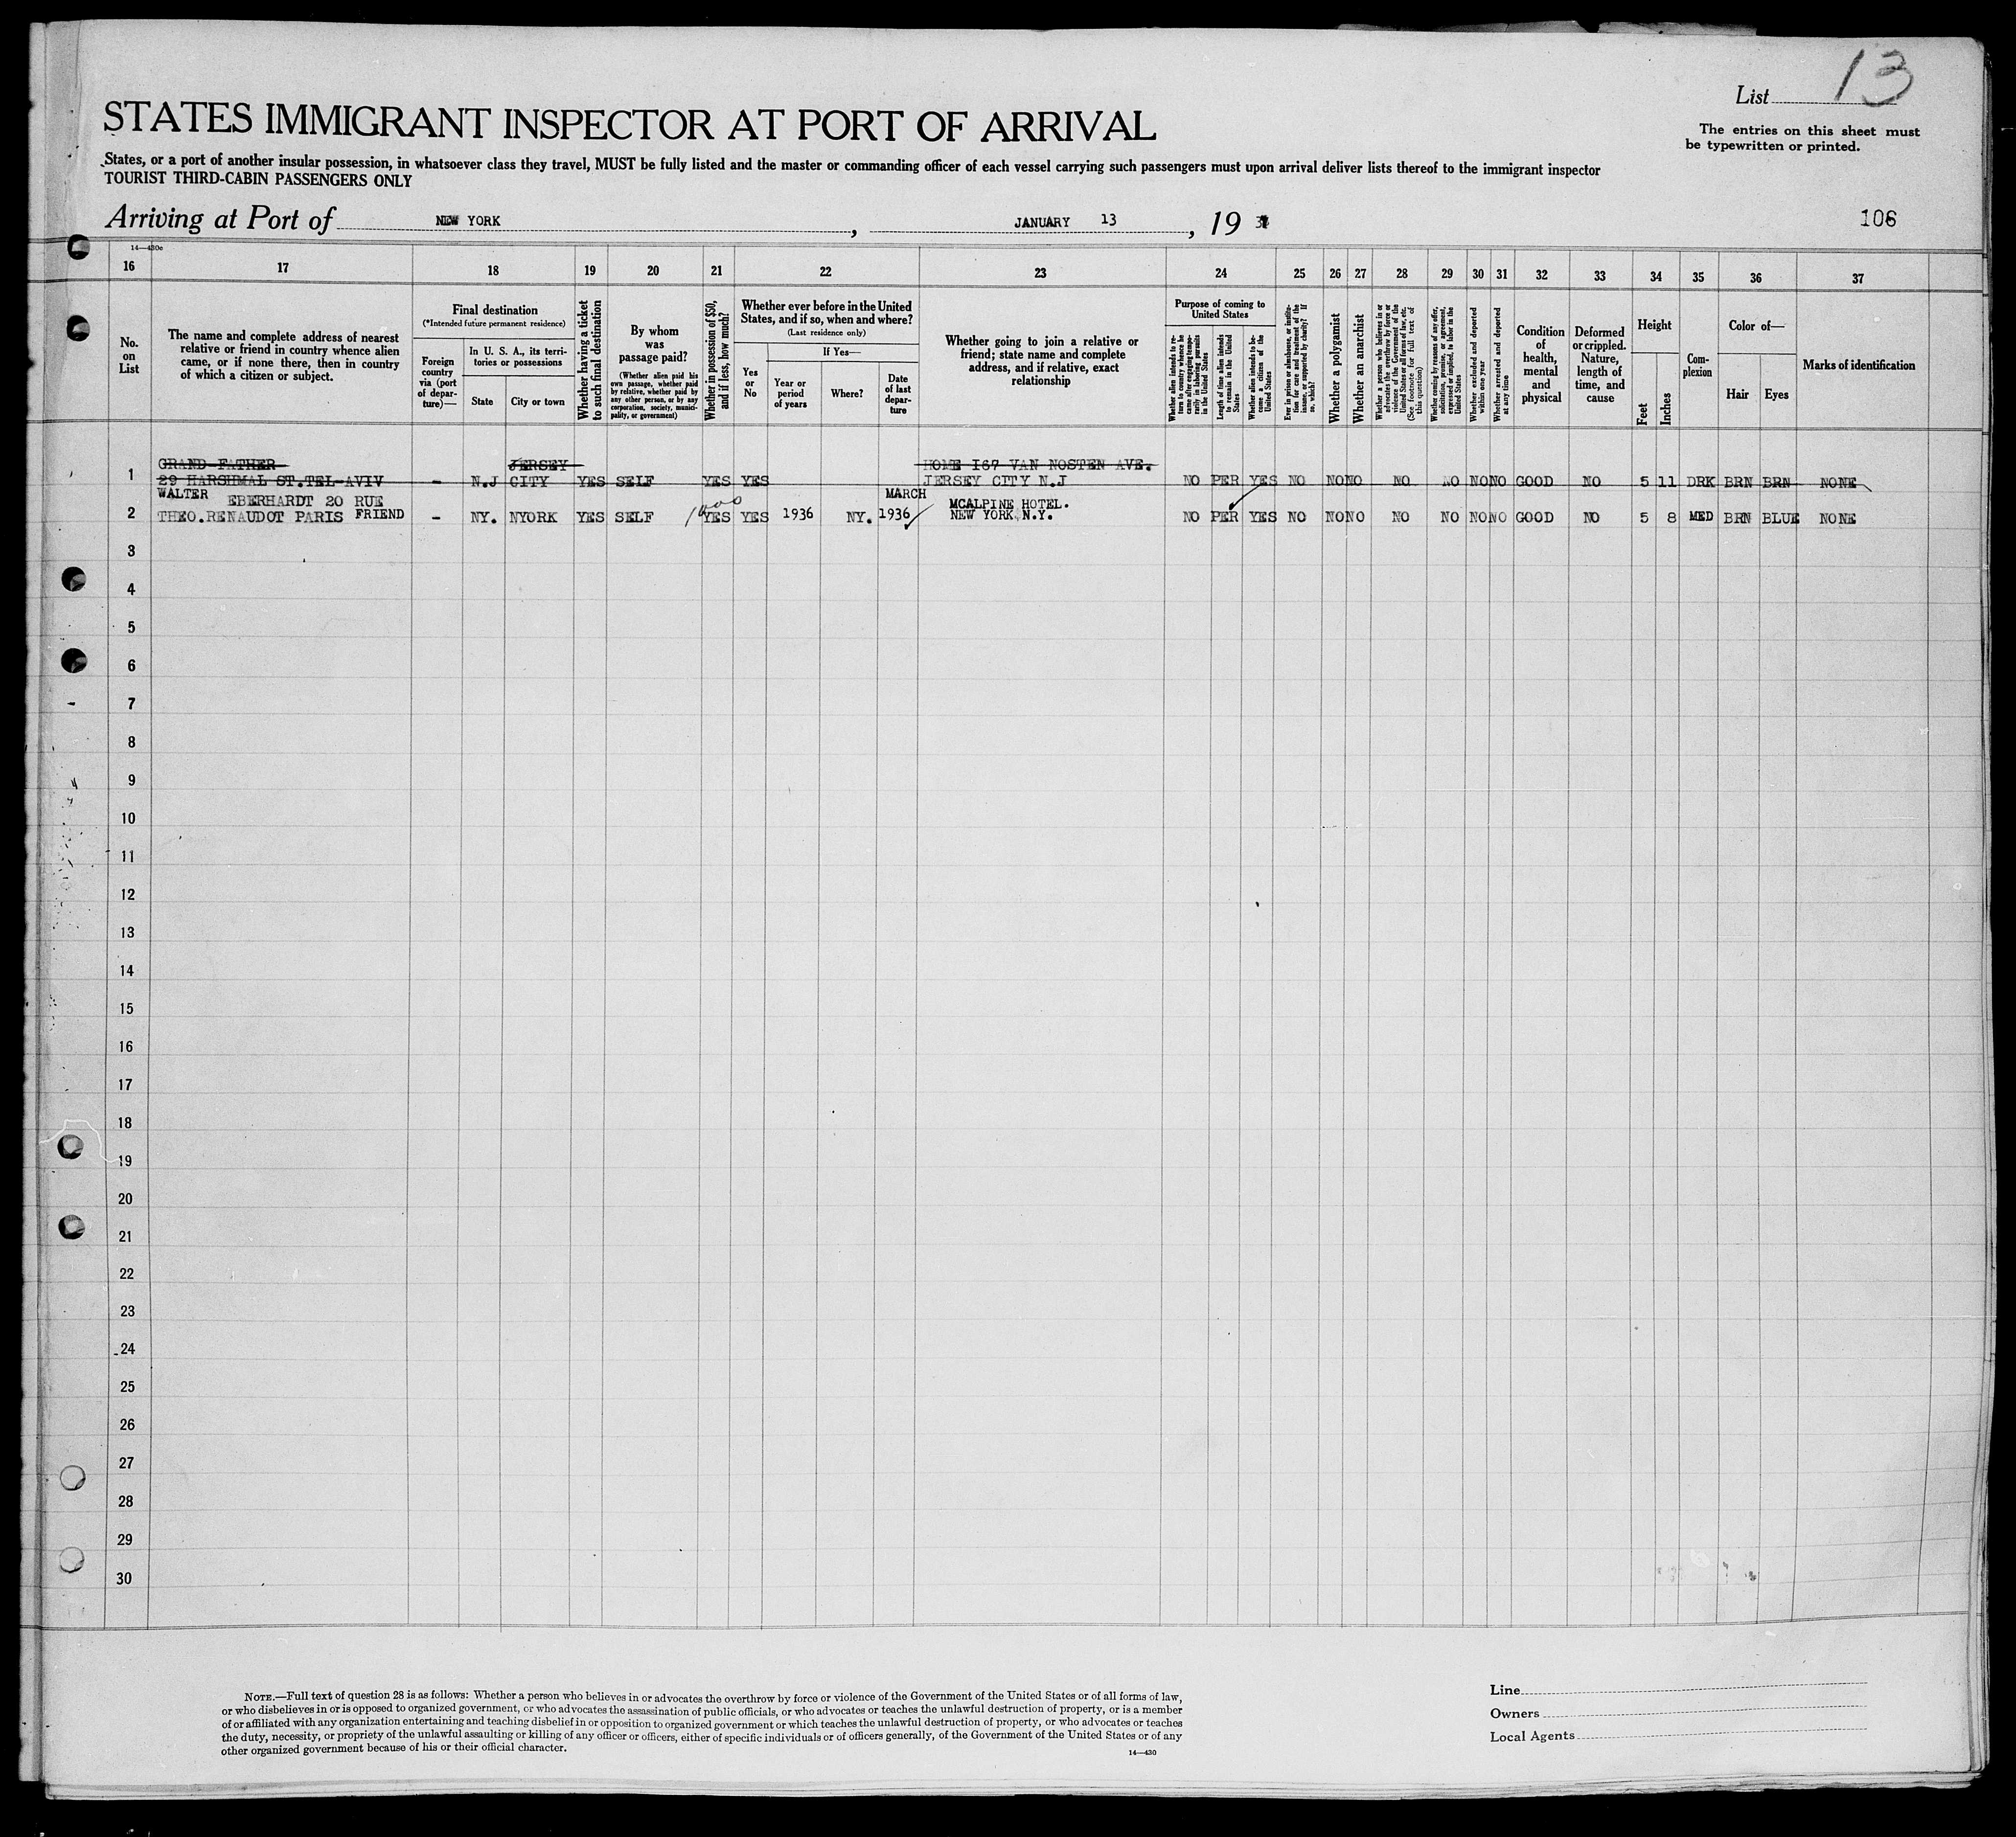 List 13
STATES IMMIGRANT INSPECTOR AT PORT OF ARRIVAL
The entries on this sheet must
be typewritten or printed.
States, or a port of another insular possession, in whatsoever class they travel, MUST be fully listed and the master or commanding officer of each vessel carrying such passengers must upon arrival deliver lists thereof to the immigrant inspector
TOURIST THIRD-CABIN PASSENGERS ONLY
Arriving at Port of NEW YORK, JANUARY 13, 19
106
14—430c
16 17 18 19 20 21 22 23 24 25 26 27 28 29 30 31 32 33 34 35 36 37
No.
on
List
The name and complete address of nearest
relative or friend in country whence alien
came, or if none there, then in country
of which a citizen or subject.
Final destination
(*Intended future permanent residence)
Foreign
country
via (port
of depar-
ture)—
In U. S. A., its terri-
tories or possessions
State
City or town
Whether having a ticket
to such final destination
By whom
was
passage paid?
(Whether alien paid his
own passage, whether paid
by relative, whether paid by
any other person, or by any
corporation, society, munici-
pality, or government)
Whether in possession of $50,
and if less, how much?
Whether ever before in the United
States, and if so, when and where?
(Last residence only)
Yes
or
No
If Yes—
Year or
period
of years
Where?
Date
of last
depar-
ture
Whether going to join a relative or
friend; state name and complete
address, and if relative, exact
relationship
Purpose of coming to
United States
Whether alien intends to re-
turn to country whence he
came after engaging tempo-
rarily in laboring pursuits
in the United States
Length of time alien intends
to remain in the United
States
Whether alien intends to be-
come a citizen of the
United States
Ever in prison or almshouse, or institu-
tion for care and treatment of the
insane, or supported by charity? If
so, which?
Whether a polygamist
Whether an anarchist
Whether a person who believes in or
advocates the overthrow by force or
violence of the Government of the
United States or all forms of law, etc.
(See footnote for full text of
this question)
Whether coming by reasons of any offer,
solicitation, promise, or agreement,
expressed or implied, to labor in the
United States
Whether excluded and deported
within one year
Whether arrested and deported
at any time
Condition
of
health,
mental
and
physical
Deformed
or crippled.
Nature,
length of
time, and
cause
Height
Feet
Inches
Com-
plexion
Color of—
Hair
Eyes
Marks of identification
GRAND-FATHER JERSEY HOME I67 VAN NOSTEN AVE.
1 29 HARSHMAL ST.TEL-AVIV - N.J CITY YES SELF YES YES JERSEY CITY N.J NO PER YES NO NO NO NO NO NO NO GOOD NO 5 11 DRK BRN BRN NONE
WALTER EBERHARDT 20 RUE 1000 MARCH MCALPINE HOTEL.
2 THEO.RENAUDOT PARIS FRIEND - NY. NYORK YES SELF YES YES 1936 NY. 1936 NEW YORK N.Y. NO PER YES NO NO NO NO NO NO NO GOOD NO 5 8 MED BRN BLUE NONE
3
4
5
6
7
8
9
10
11
12
13
14
15
16
17
18
19
20
21
22
23
24
25
26
27
28
29
30
NOTE.—Full text of question 28 is as follows: Whether a person who believes in or advocates the overthrow by force or violence of the Government of the United States or of all forms of law,
or who disbelieves in or is opposed to organized government, or who advocates the assassination of public officials, or who advocates or teaches the unlawful destruction of property, or is a member
of or affiliated with any organization entertaining and teaching disbelief in or opposition to organized government or which teaches the unlawful destruction of property, or who advocates or teaches
the duty, necessity, or propriety of the unlawful assaulting or killing of any officer or officers, either of specific individuals or of officers generally, of the Government of the United States or of any
other organized government because of his or their official character.
14—430
Line
Owners
Local Agents